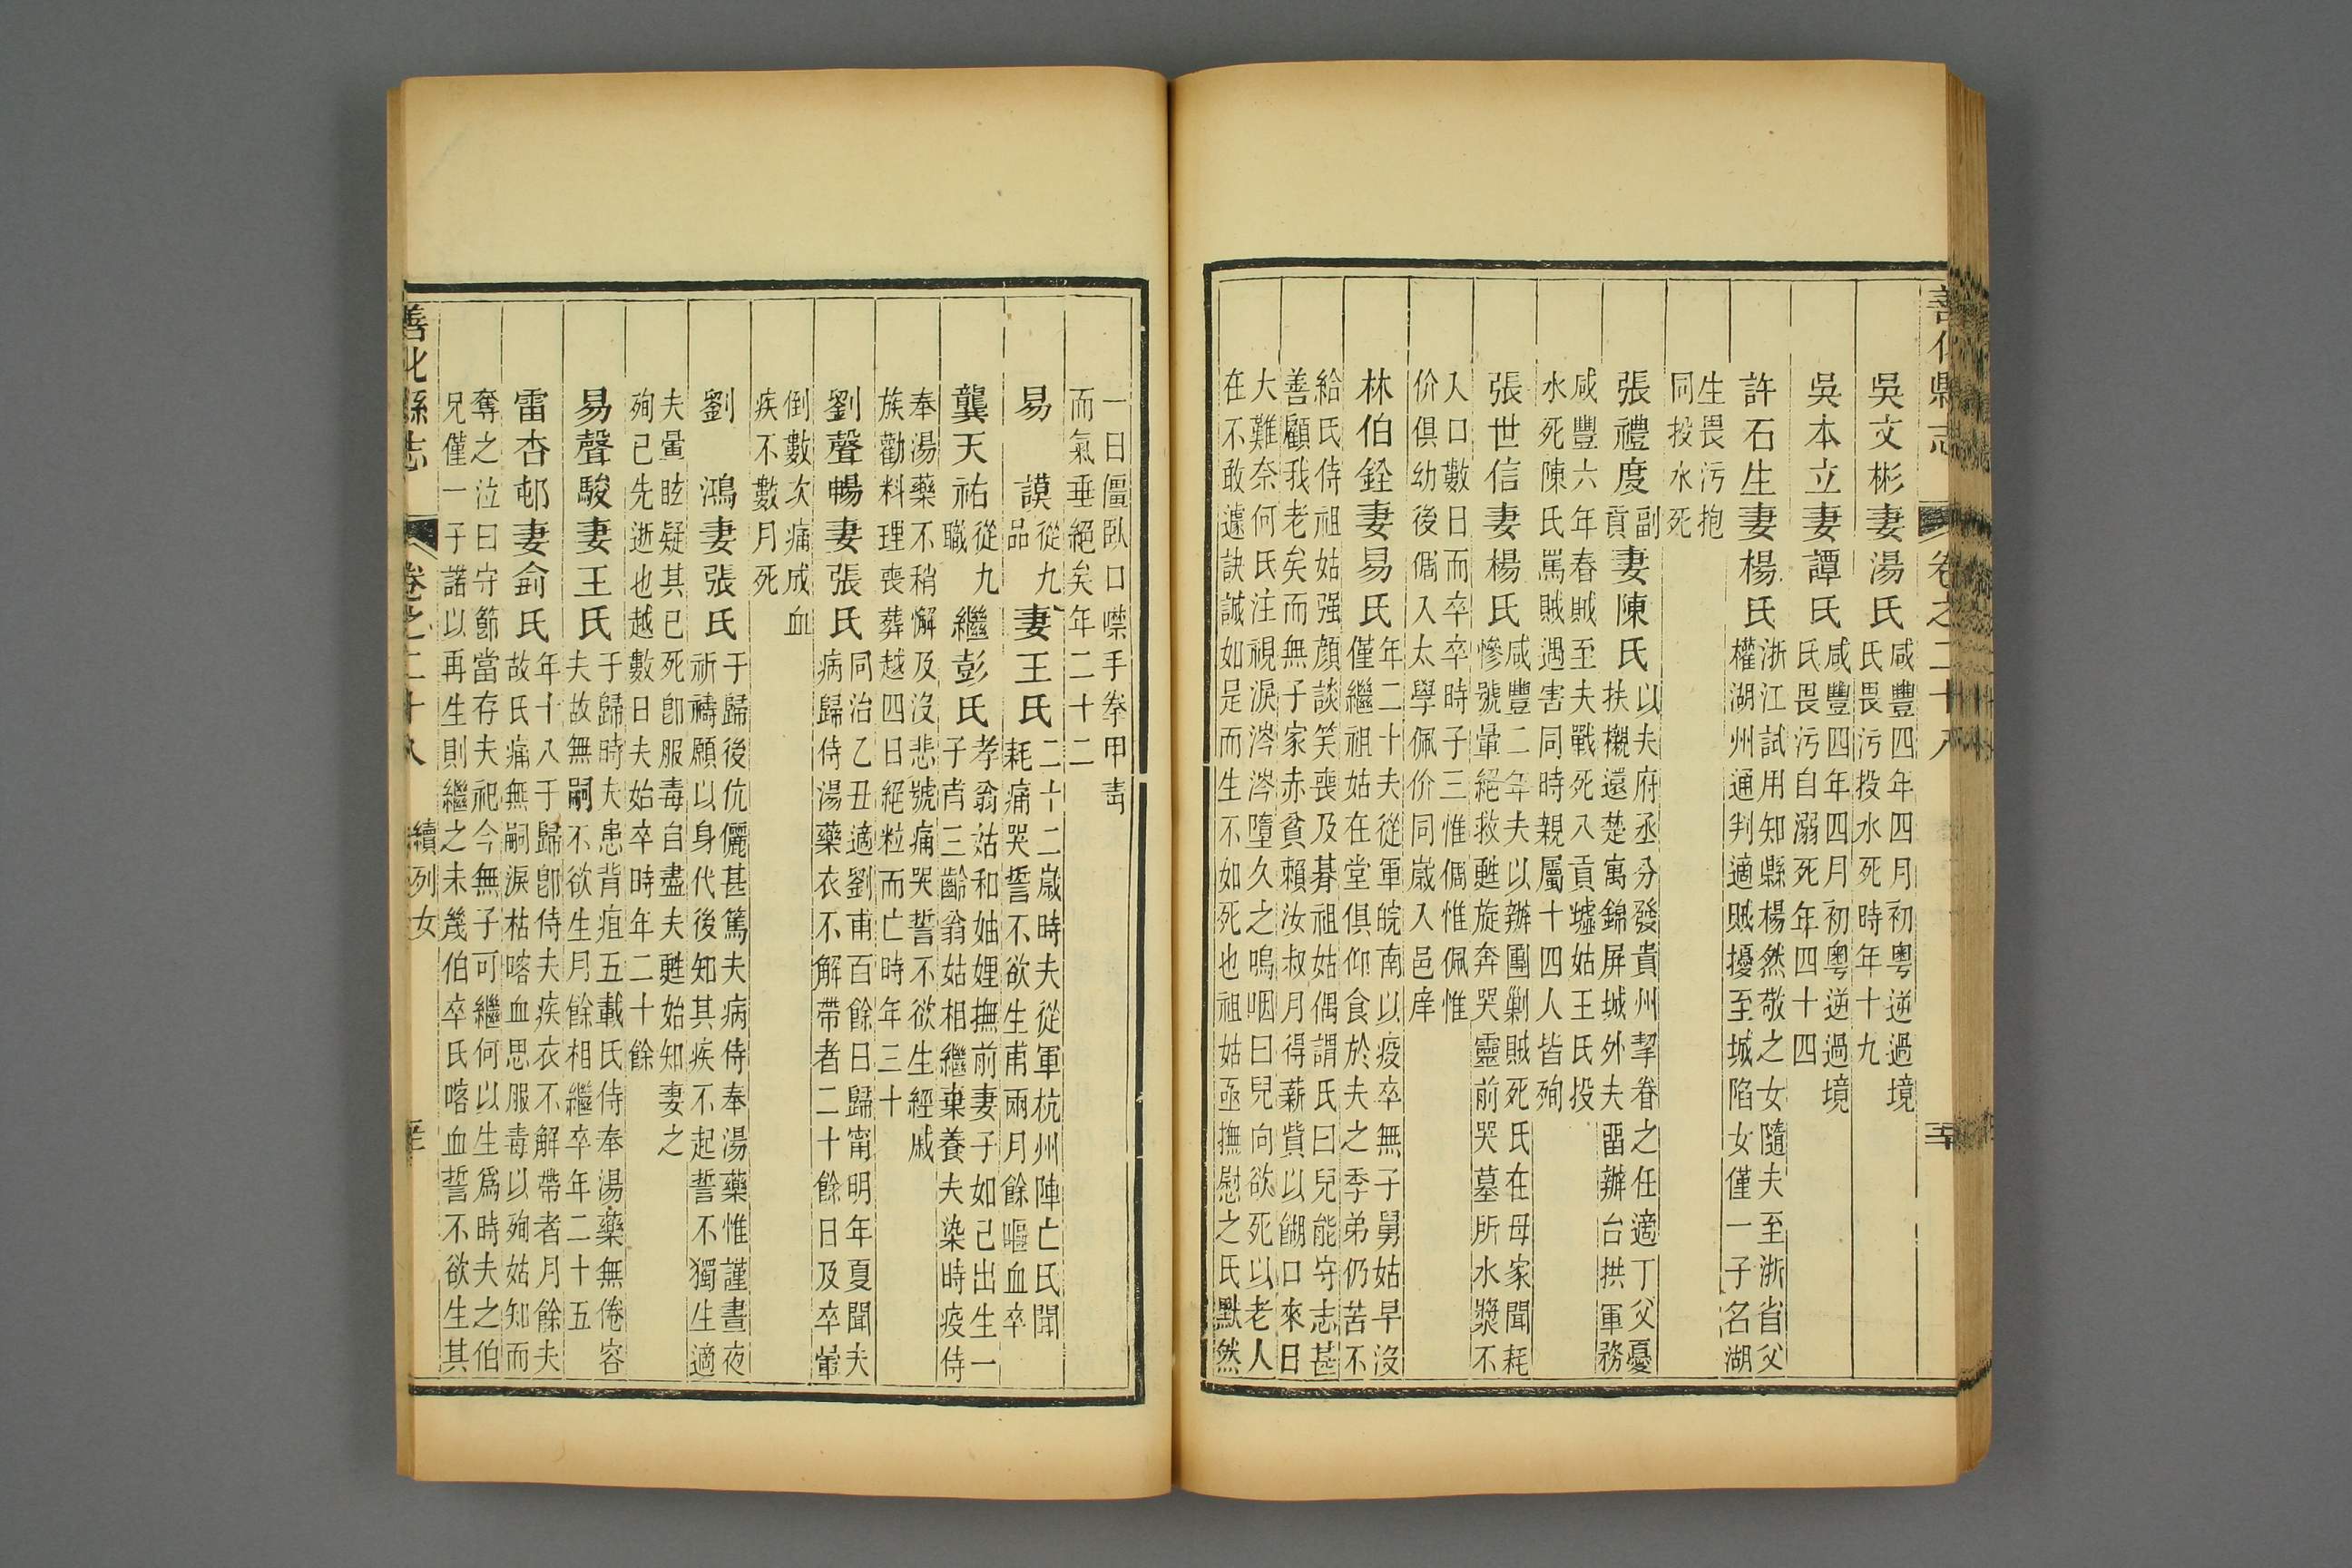 善化縣志 卷之二十八
吳文彬妻湯氏咸豐四年四月初粵逆過境
氏畏污投水死時年十九
吳本立妻譚氏咸豐四年四月初粵逆過境
氏畏污自溺死年四十四
許石生妻楊氏浙江試用知縣楊然敬之女隨夫至浙省父
權湖州通判適賊擾至城陷女僅一子名湖
生畏污抱
同投水死
張禮度副貢妻陳氏以夫府丞分發貴州挈眷之任適丁父憂
扶櫬還楚寓錦屏城外夫畱辦台拱軍務
咸豐六年春賊至夫戰死八貢墟姑王氏投
水死陳氏罵賊遇害同時親屬十四人皆殉
張世信妻楊氏咸豐二年夫以辦團剿賊死氏在母家聞耗
慘號暈絕救甦旋奔哭靈前哭墓所水漿不
入口數日而卒卒時子三惟倜惟佩惟
价俱幼後倜入太學佩价同歲入邑庠
林伯銓妻易氏年二十夫從軍皖南以疫卒無子舅姑早沒
僅繼祖姑在堂俱仰食於夫之季弟仍苦不
給氏侍祖姑强顔談笑喪及朞祖姑偶謂氏曰兒能守志甚
善顧我老矣而無子家赤貧賴汝叔月得薪貲以餬口來日
大難奈何氏注視淚涔涔墮久之嗚咽曰兒向欲死以老人
在不敢遽訣誠如是而生不如死也祖姑亟撫慰之氏默然
一日僵臥口噤手拳甲靑
而氣垂絕矣年二十二
易 謨從九品妻王氏二十二歲時夫從軍杭州陣亡氏聞
耗痛哭誓不欲生甫兩月餘嘔血卒
龔天祐從九職繼彭氏孝翁姑和妯娌撫前妻子如己出生一
子甫三齡翁姑相繼棄養夫染時疫侍
奉湯藥不稍懈及沒悲號痛哭誓不欲生經戚
族勸料理喪葬越四日絕粒而亡時年三十
劉聲暢妻張氏同治乙丑適劉甫百餘日歸甯明年夏聞夫
病歸侍湯藥衣不解帶者二十餘日及卒暈
倒數次痛成血
疾不數月死
劉 鴻妻張氏于歸後伉儷甚篤夫病侍奉湯藥惟謹晝夜
祈禱願以身代後知其疾不起誓不獨生適
夫暈眩疑其已死卽服毒自盡夫甦始知妻之
殉己先逝也越數日夫始卒時年二十餘
易聲駿妻王氏于歸時夫患背疽五載氏侍奉湯藥無倦容
夫故無嗣不欲生月餘相繼卒年二十五
雷杏邨妻俞氏年十八于歸卽侍夫疾衣不解帶者月餘夫
故氏痛無嗣淚枯喀血思服毒以殉姑知而
奪之泣曰守節當存夫祀今無子可繼何以生爲時夫之伯
兄僅一子諾以再生則繼之未幾伯卒氏喀血誓不欲生其
善化縣志 卷之二十八 續列女